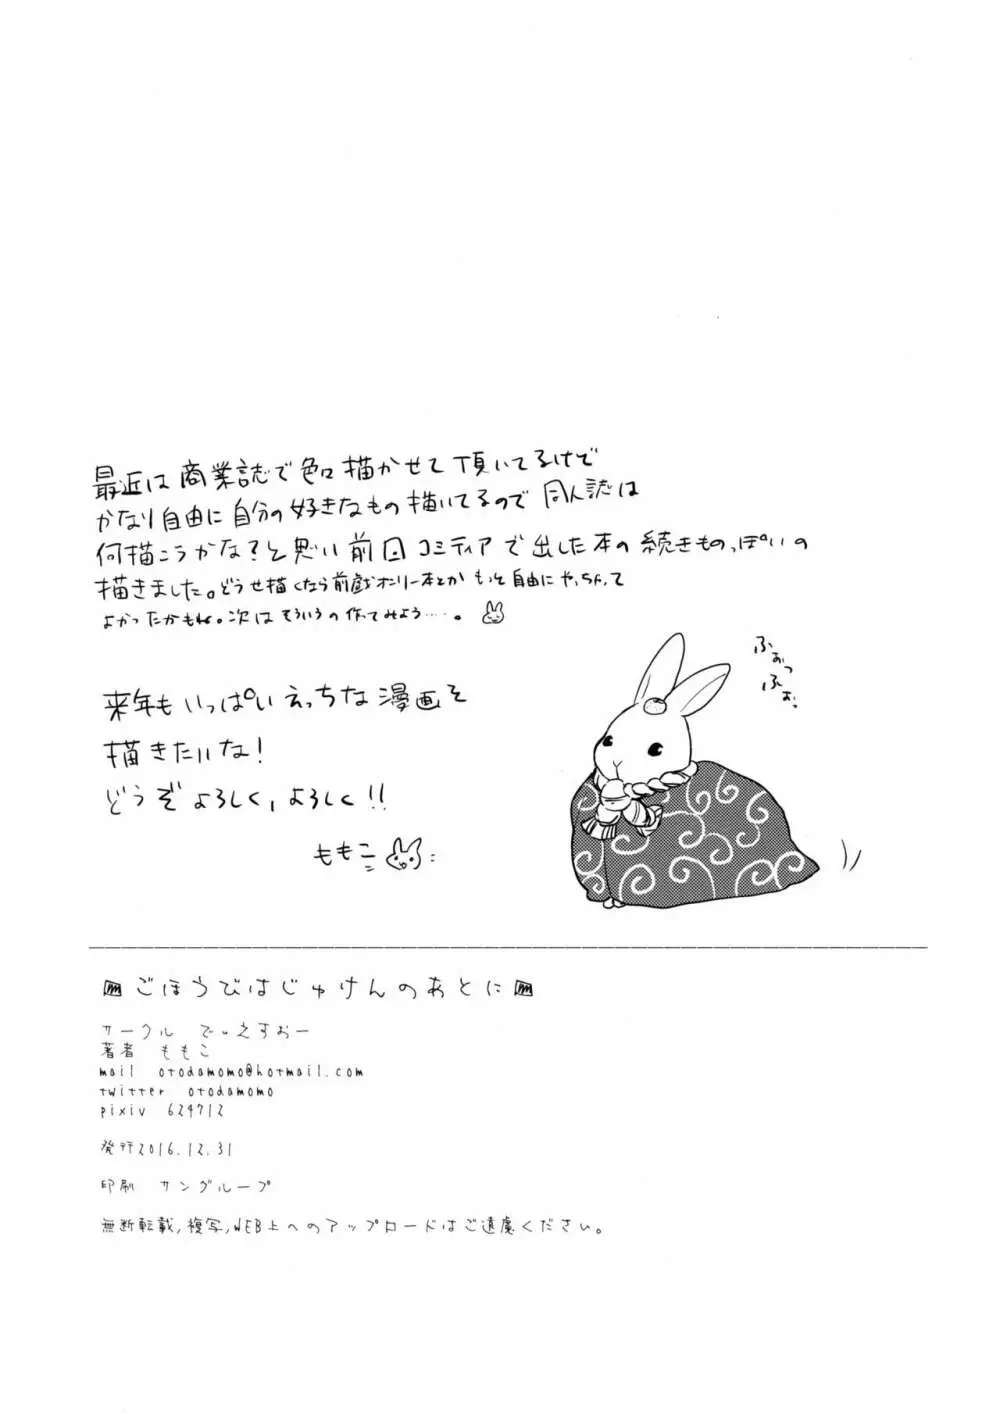 最近は商業誌で色々描かせて頂いてるけど
かなり自由に自分の好きなもの描いてるので同人誌は
何描こうかな?と思い前回コミティアで出した本の続きものっぽいの
描きました。どうせ描くなら前戯オンリー本とかもっと自由にやっちゃって
よかったかもね。次はそういうの作ってみよう……。
ふぉっ
ふぉっ
来年もいっぱいえっちな漫画を
描きたいな!
どうぞよろしく、よろしく!!
ももこ
ごほうびはじゅけんのあとに
サークル でぃえすおー
著者 ももこ
mail otodamomo@hotmail.com
twitter otodamomo
pixiv 624712
発行2016.12.31
印刷 サングループ
無断転載,複写,WEB上へのアップロードはご遠慮ください。